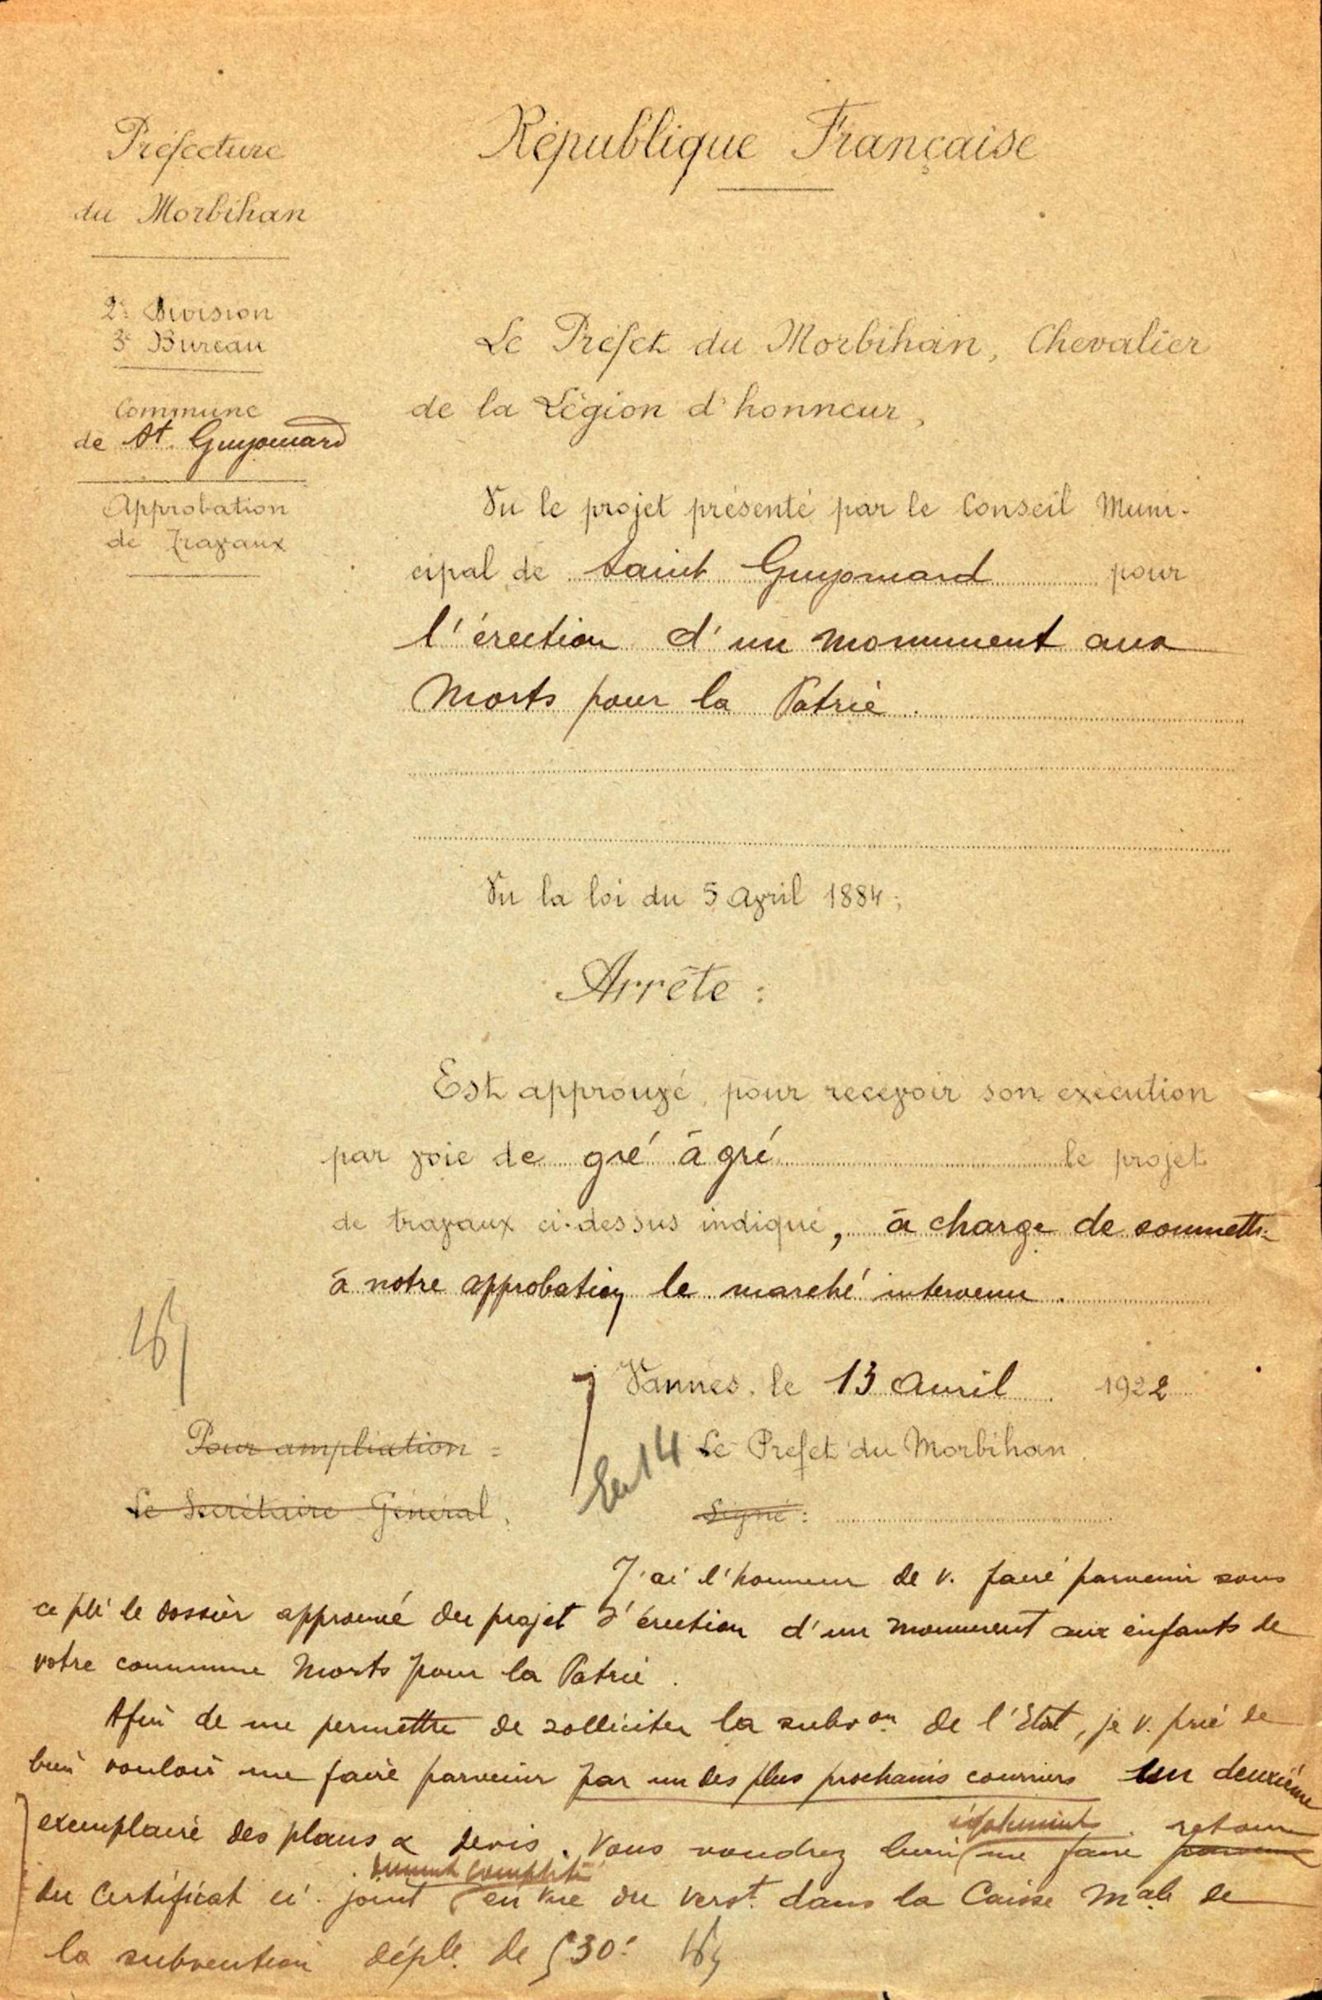 Préfecture
du Morbihan
2e Division
3e Bureau
Commune
de St. Guyomard
Approbation
de Travaux
République Française
Le Préfet du Morbihan, Chevalier
de la Légion d'honneur,
Vu le projet présenté par le Conseil Muni-
cipal de Saint Guyomard pour
l'érection d'un monument aux
Morts pour la Patrie.
Vu la loi du 5 Avril 1884;
Arrête :
Est approuvé, pour recevoir son exécution
par voie de gré à gré le projet
de travaux ci-dessus indiqué, à charge de soumettre
à notre approbation le marché intervenu.
Vannes, le 13 Avril 1922
Pour ampliation =
Le Préfet du Morbihan
Le Secrétaire Général,
Signé :
J'ai l'honneur de v. faire parvenir sous
ce pli le dossier approuvé du projet d'érection d'un monument aux enfants de
votre commune Morts pour la Patrie.
Afin de me permettre de solliciter la subvon de l'Etat, je v. prie de
bien vouloir me faire parvenir par un des plus prochains courriers un deuxième
exemplaire des plans & devis. Vous voudrez bien également me faire parvenir retour
du certificat ci-joint dûment complété en vue du verst. dans la Caisse Male de
la subvention déple. de 530f